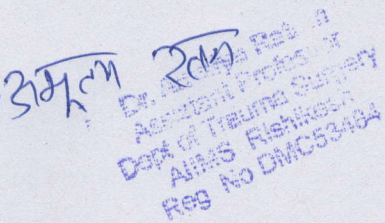 अमूल्य रतन
Dr. Rat
Assistant Professor
Dept of Trauma Surgery
AIIMS Rishikesh
Reg No DMC53404